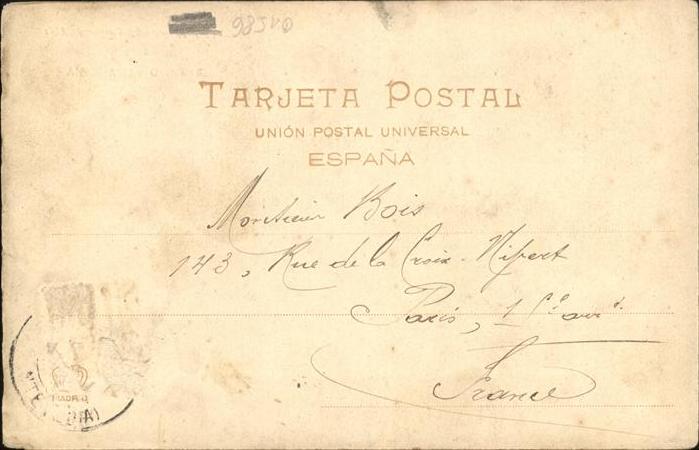 TARJETA POSTAL
UNIÓN POSTAL UNIVERSAL
ESPAÑA
Monsieur Bois
143, Rue de la Croix-Nivert
Paris,
France
MADRID